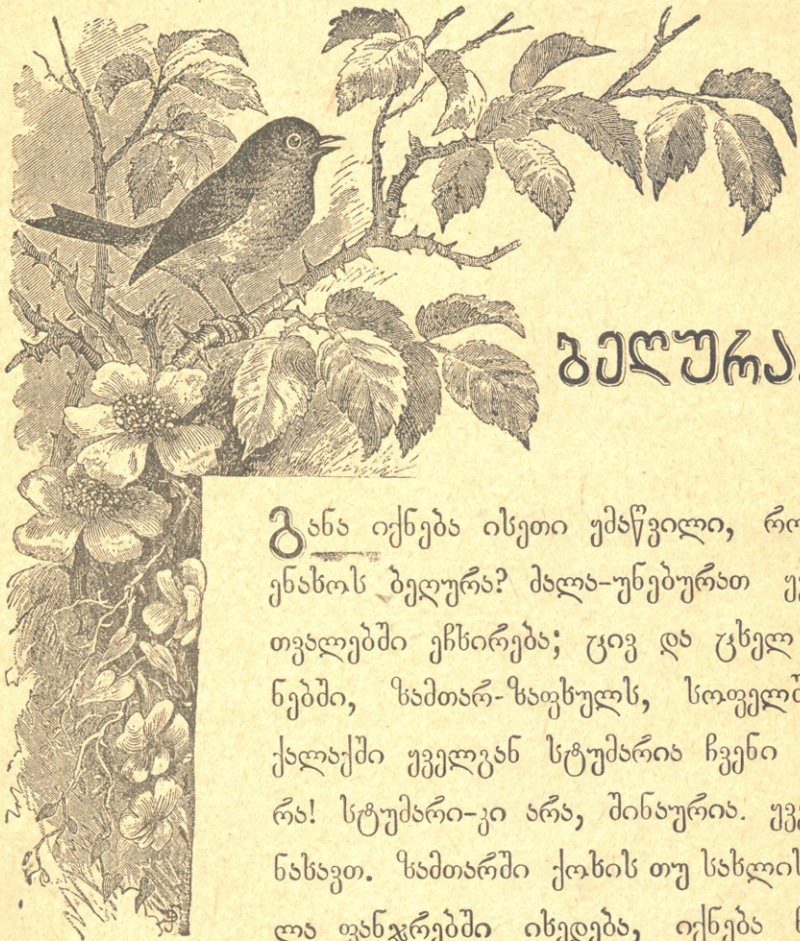 ბეღურა.
განა იქნება ისეთი ყმაწვილი, რო
ენახოს ბეღურა? ძალა-უნებურათ ყვ
თვალებში ეჩხირება; ცივ და ცხელ
ნებში, ზამთარ-ზაფხულს, სოფელშ
ქალაქში ყველგან სტუმარია ჩვენი
რა! სტუმარი-კი არა, შინაურია. ყვე
ნახავთ. ზამთარში ქოხის თუ სახლის
ლა ფანჯრებში ისედება, იქნება ნ